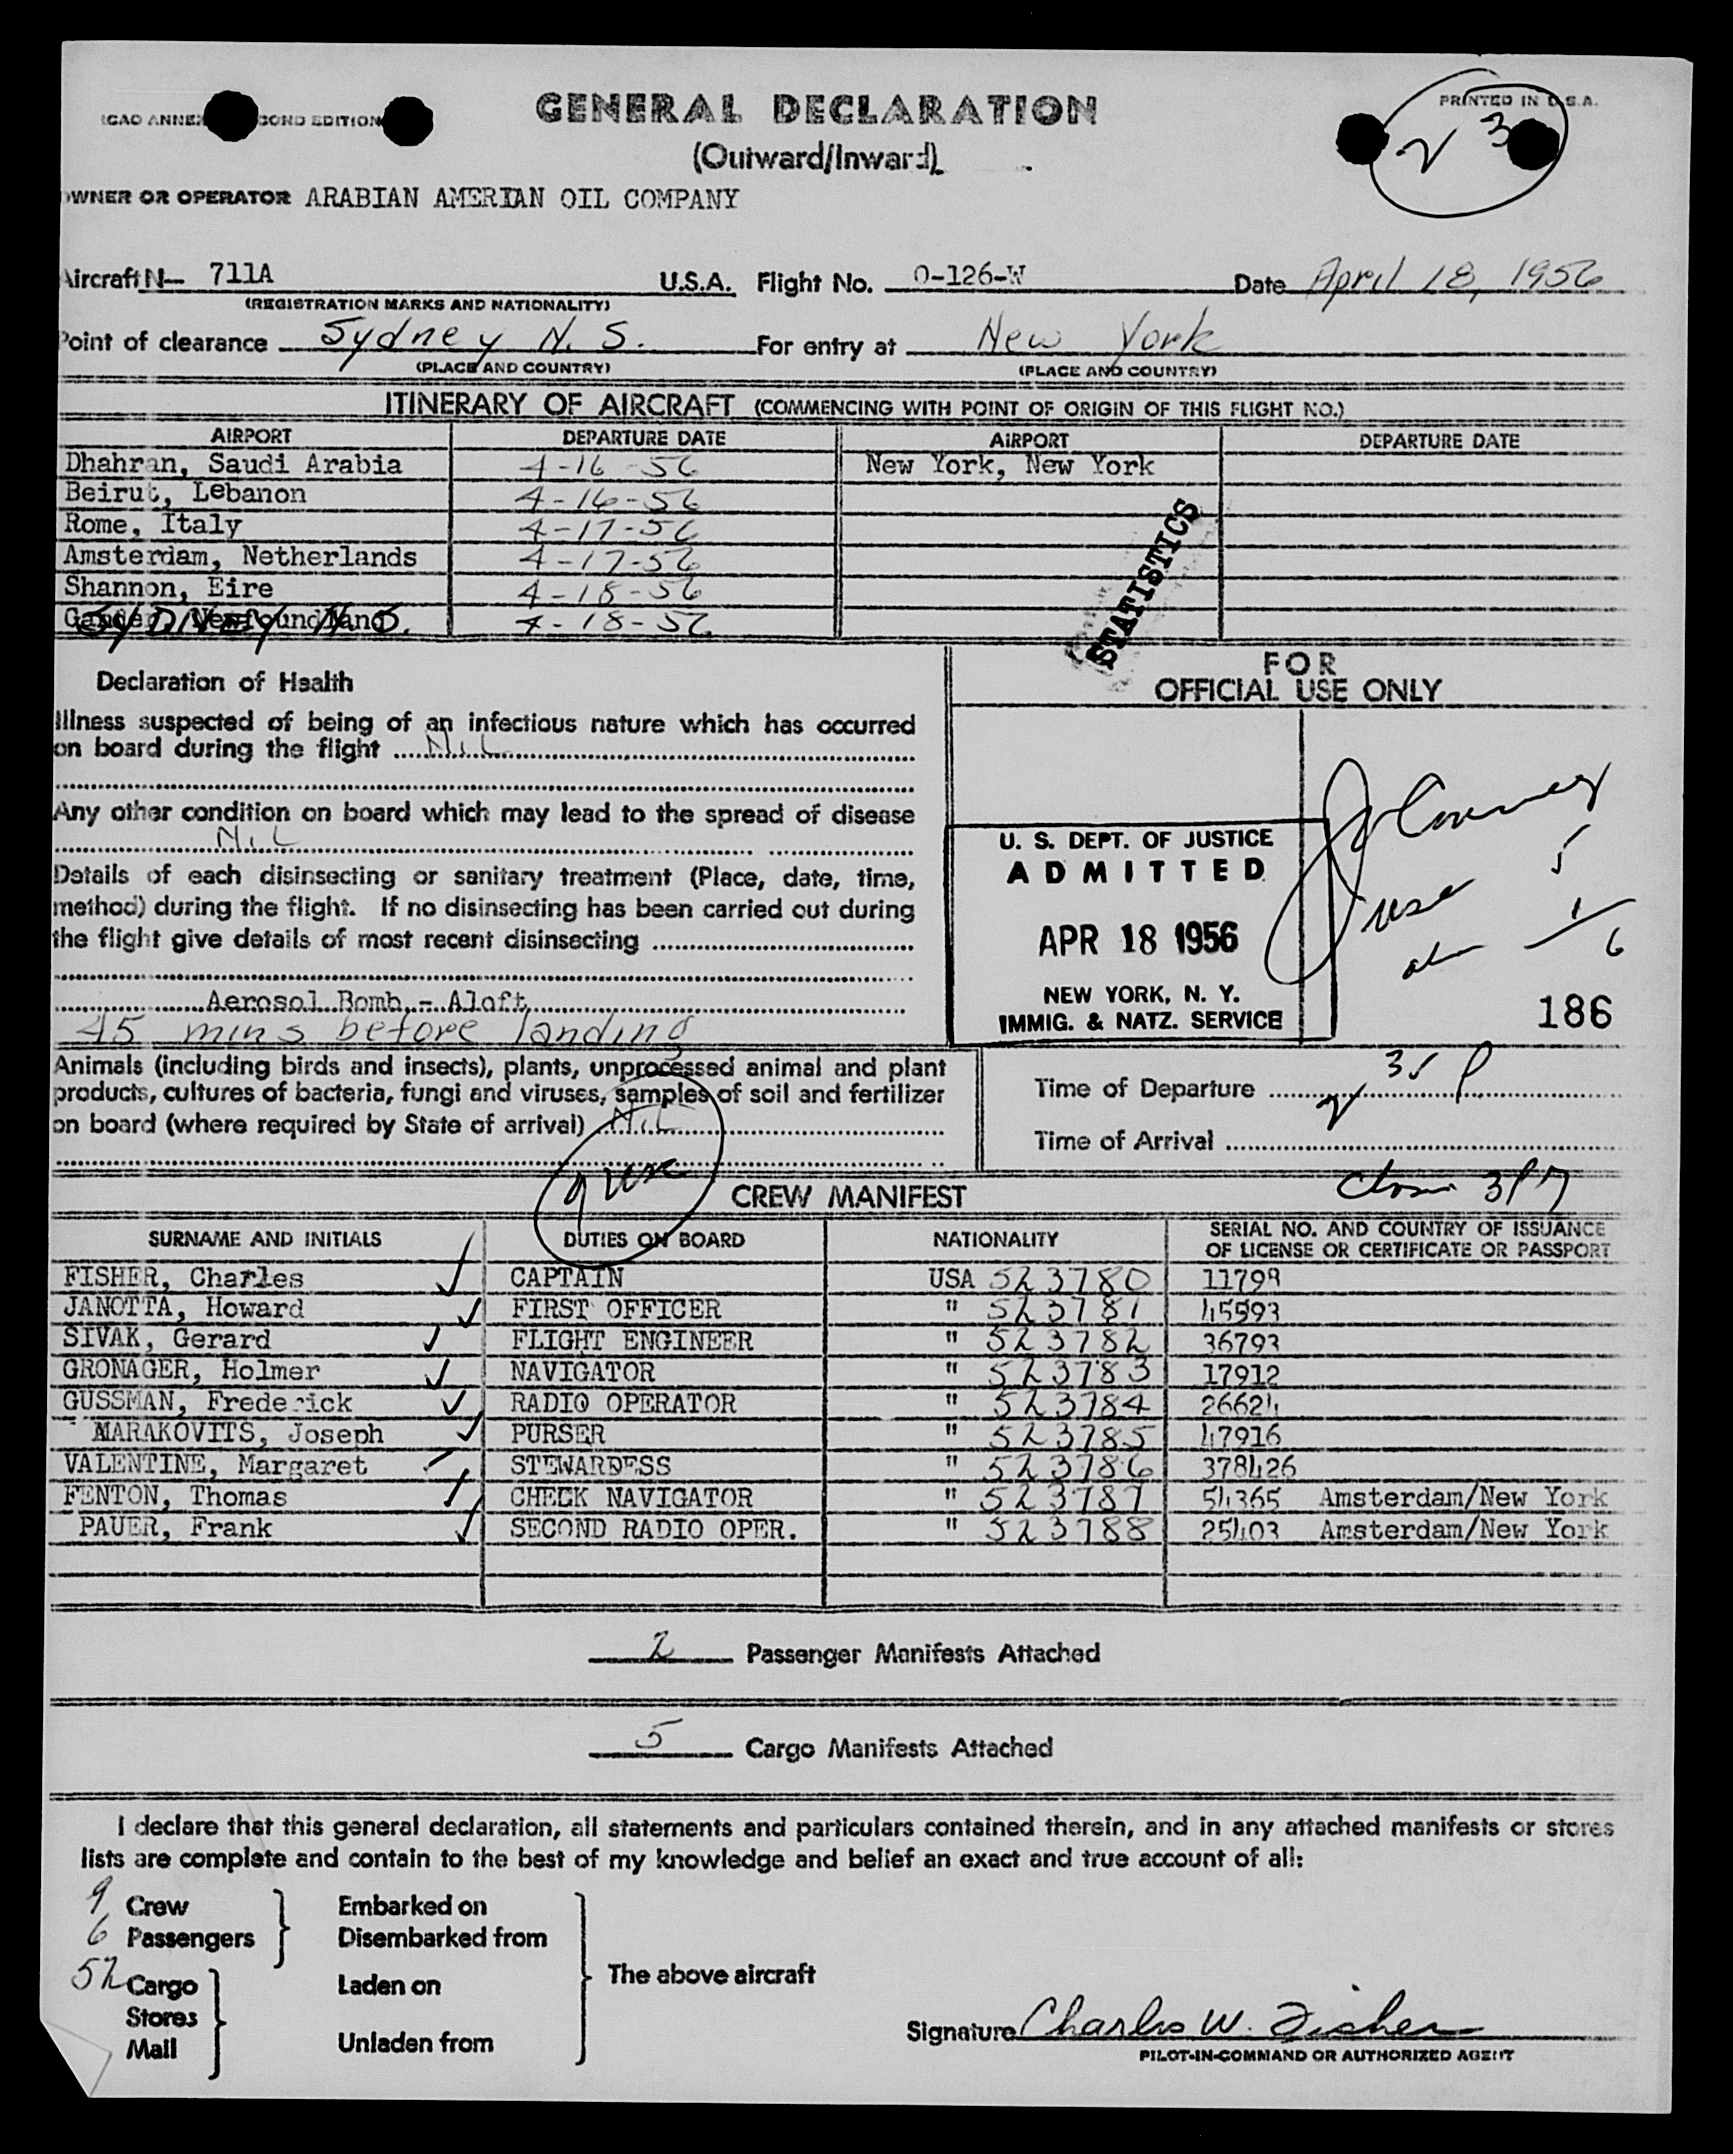 GENERAL DECLARATION
(Outward/Inward)
PRINTED IN U.S.A.
2 3
OWNER OR OPERATOR ARABIAN AMERIAN OIL COMPANY
Aircraft N— 711A U.S.A. Flight No. O-126-W Date April 18, 1956
(REGISTRATION MARKS AND NATIONALITY)
Point of clearance Sydney N. S. For entry at New York
(PLACE AND COUNTRY) (PLACE AND COUNTRY)
ITINERARY OF AIRCRAFT (COMMENCING WITH POINT OF ORIGIN OF THIS FLIGHT NO.)
AIRPORT DEPARTURE DATE AIRPORT DEPARTURE DATE
Dhahran, Saudi Arabia 4-16-56 New York, New York
Beirut, Lebanon 4-16-56
Rome, Italy 4-17-56
Amsterdam, Netherlands 4-17-56
Shannon, Eire 4-18-56
SYDNEY N.S. 4-18-56
STATISTICS
Declaration of Health
Illness suspected of being of an infectious nature which has occurred
on board during the flight NiL
Any other condition on board which may lead to the spread of disease
NiL
Details of each disinsecting or sanitary treatment (Place, date, time,
method) during the flight. If no disinsecting has been carried out during
the flight give details of most recent disinsecting
Aerosol Bomb - Aloft
45 mins before landing
FOR
OFFICIAL USE ONLY
U. S. DEPT. OF JUSTICE
ADMITTED
APR 18 1956
NEW YORK, N. Y.
IMMIG. & NATZ. SERVICE
5
1
6
186
Animals (including birds and insects), plants, unprocessed animal and plant
products, cultures of bacteria, fungi and viruses, samples of soil and fertilizer
on board (where required by State of arrival) NiL
Time of Departure 2 35 P
Time of Arrival
CREW MANIFEST
SURNAME AND INITIALS DUTIES ON BOARD NATIONALITY SERIAL NO. AND COUNTRY OF ISSUANCE
OF LICENSE OR CERTIFICATE OR PASSPORT
FISHER, Charles CAPTAIN USA 523780 11799
JANOTTA, Howard FIRST OFFICER " 523781 45593
SIVAK, Gerard FLIGHT ENGINEER " 523782 36793
GRONAGER, Holmer NAVIGATOR " 523783 17912
GUSSMAN, Frederick RADIO OPERATOR " 523784 26624
MARAKOVITS, Joseph PURSER " 523785 47916
VALENTINE, Margaret STEWARDESS " 523786 378426
FENTON, Thomas CHECK NAVIGATOR " 523787 54365 Amsterdam/New York
PAUER, Frank SECOND RADIO OPER. " 523788 25403 Amsterdam/New York
2 Passenger Manifests Attached
5 Cargo Manifests Attached
I declare that this general declaration, all statements and particulars contained therein, and in any attached manifests or stores
lists are complete and contain to the best of my knowledge and belief an exact and true account of all:
9 Crew Embarked on
6 Passengers Disembarked from
The above aircraft
52 Cargo Laden on
Stores
Mail Unladen from
Signature Charles W. Fisher
PILOT-IN-COMMAND OR AUTHORIZED AGENT